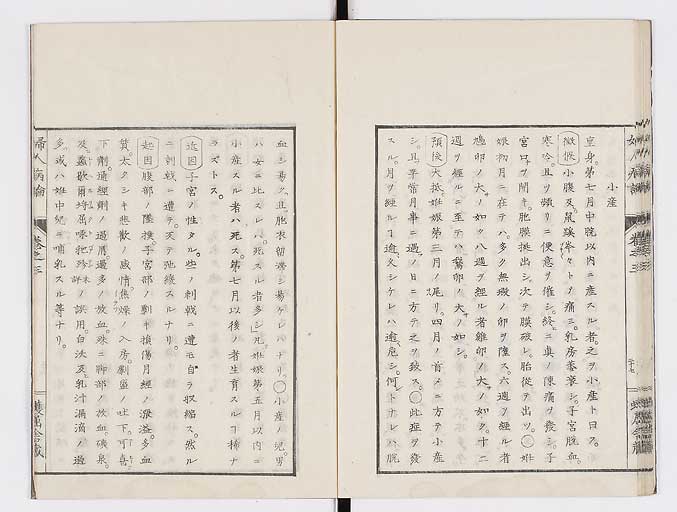 小産
皇身。第七月中晥以内ニ産スル者之ヲ小産ト曰フ。
徴候 小腹及鼠蹊
ノ痛ミ。乳房萎衰シ。子宮脱血。
寒冷且ツ頻リニ便意ヲ催シ。終ニ真ノ陳痛ヲ発シ。子
宮口ヲ開キ。胞膜挺出シ次テ膜破レ。胎從テ出ツ。○姙
娠初月ニ在テハ。多ク無瘕ノ卵ヲ墮ス。六週ヲ經ル者
鳩卵ノ大ノ如ク。八週ヲ經ル者雞卵ノ大ノ如ク。十二
週ヲ經ルニ至テハ鵞卵ノ大ノ如シ。
預後 大抵姙娠第三月ノ尾リ。四月ノ首メニ方テ小産
シ。且平常月事ニ遇フノ日ニ方テ之ヲ致ス。○此症ヲ発
スル。月ヲ經ルヿ逾々少シケレハ。逾々危シ。何トナレハ脱
血シ易ク。且胞衣留滞シ易ケレハナリ。○小産ノ児。男
ハ女ニ比スレハ。死スル者多シ。凡姙娠第五月以内ニ
小産スル者ハ死ス。第七月以後ノ者生育スルヿ稀ナ
ラストス。
近因 子宮ノ性タル。些ノ刺戟ニ遭モ自ラ収縮ス。然ル
ニ刺戟ニ遭テ。夭テ弛緩スルナリ。
起因 腹部ノ墜撲。子宮部ノ劓キ損傷月經ノ泄溢。多血
質。太タシキ悲歎ノ感情。焦燥ノ入房。劇盛ノ吐下。可喜
下劑。通經劑ノ過用。過多ノ放血。殊ニ脚部ノ放血。礦泉。
及
白沃及乳汁漏滴ノ過
多。或ハ姙中兒ニ哺乳スル等ナリ。
婦人病論
卷之三